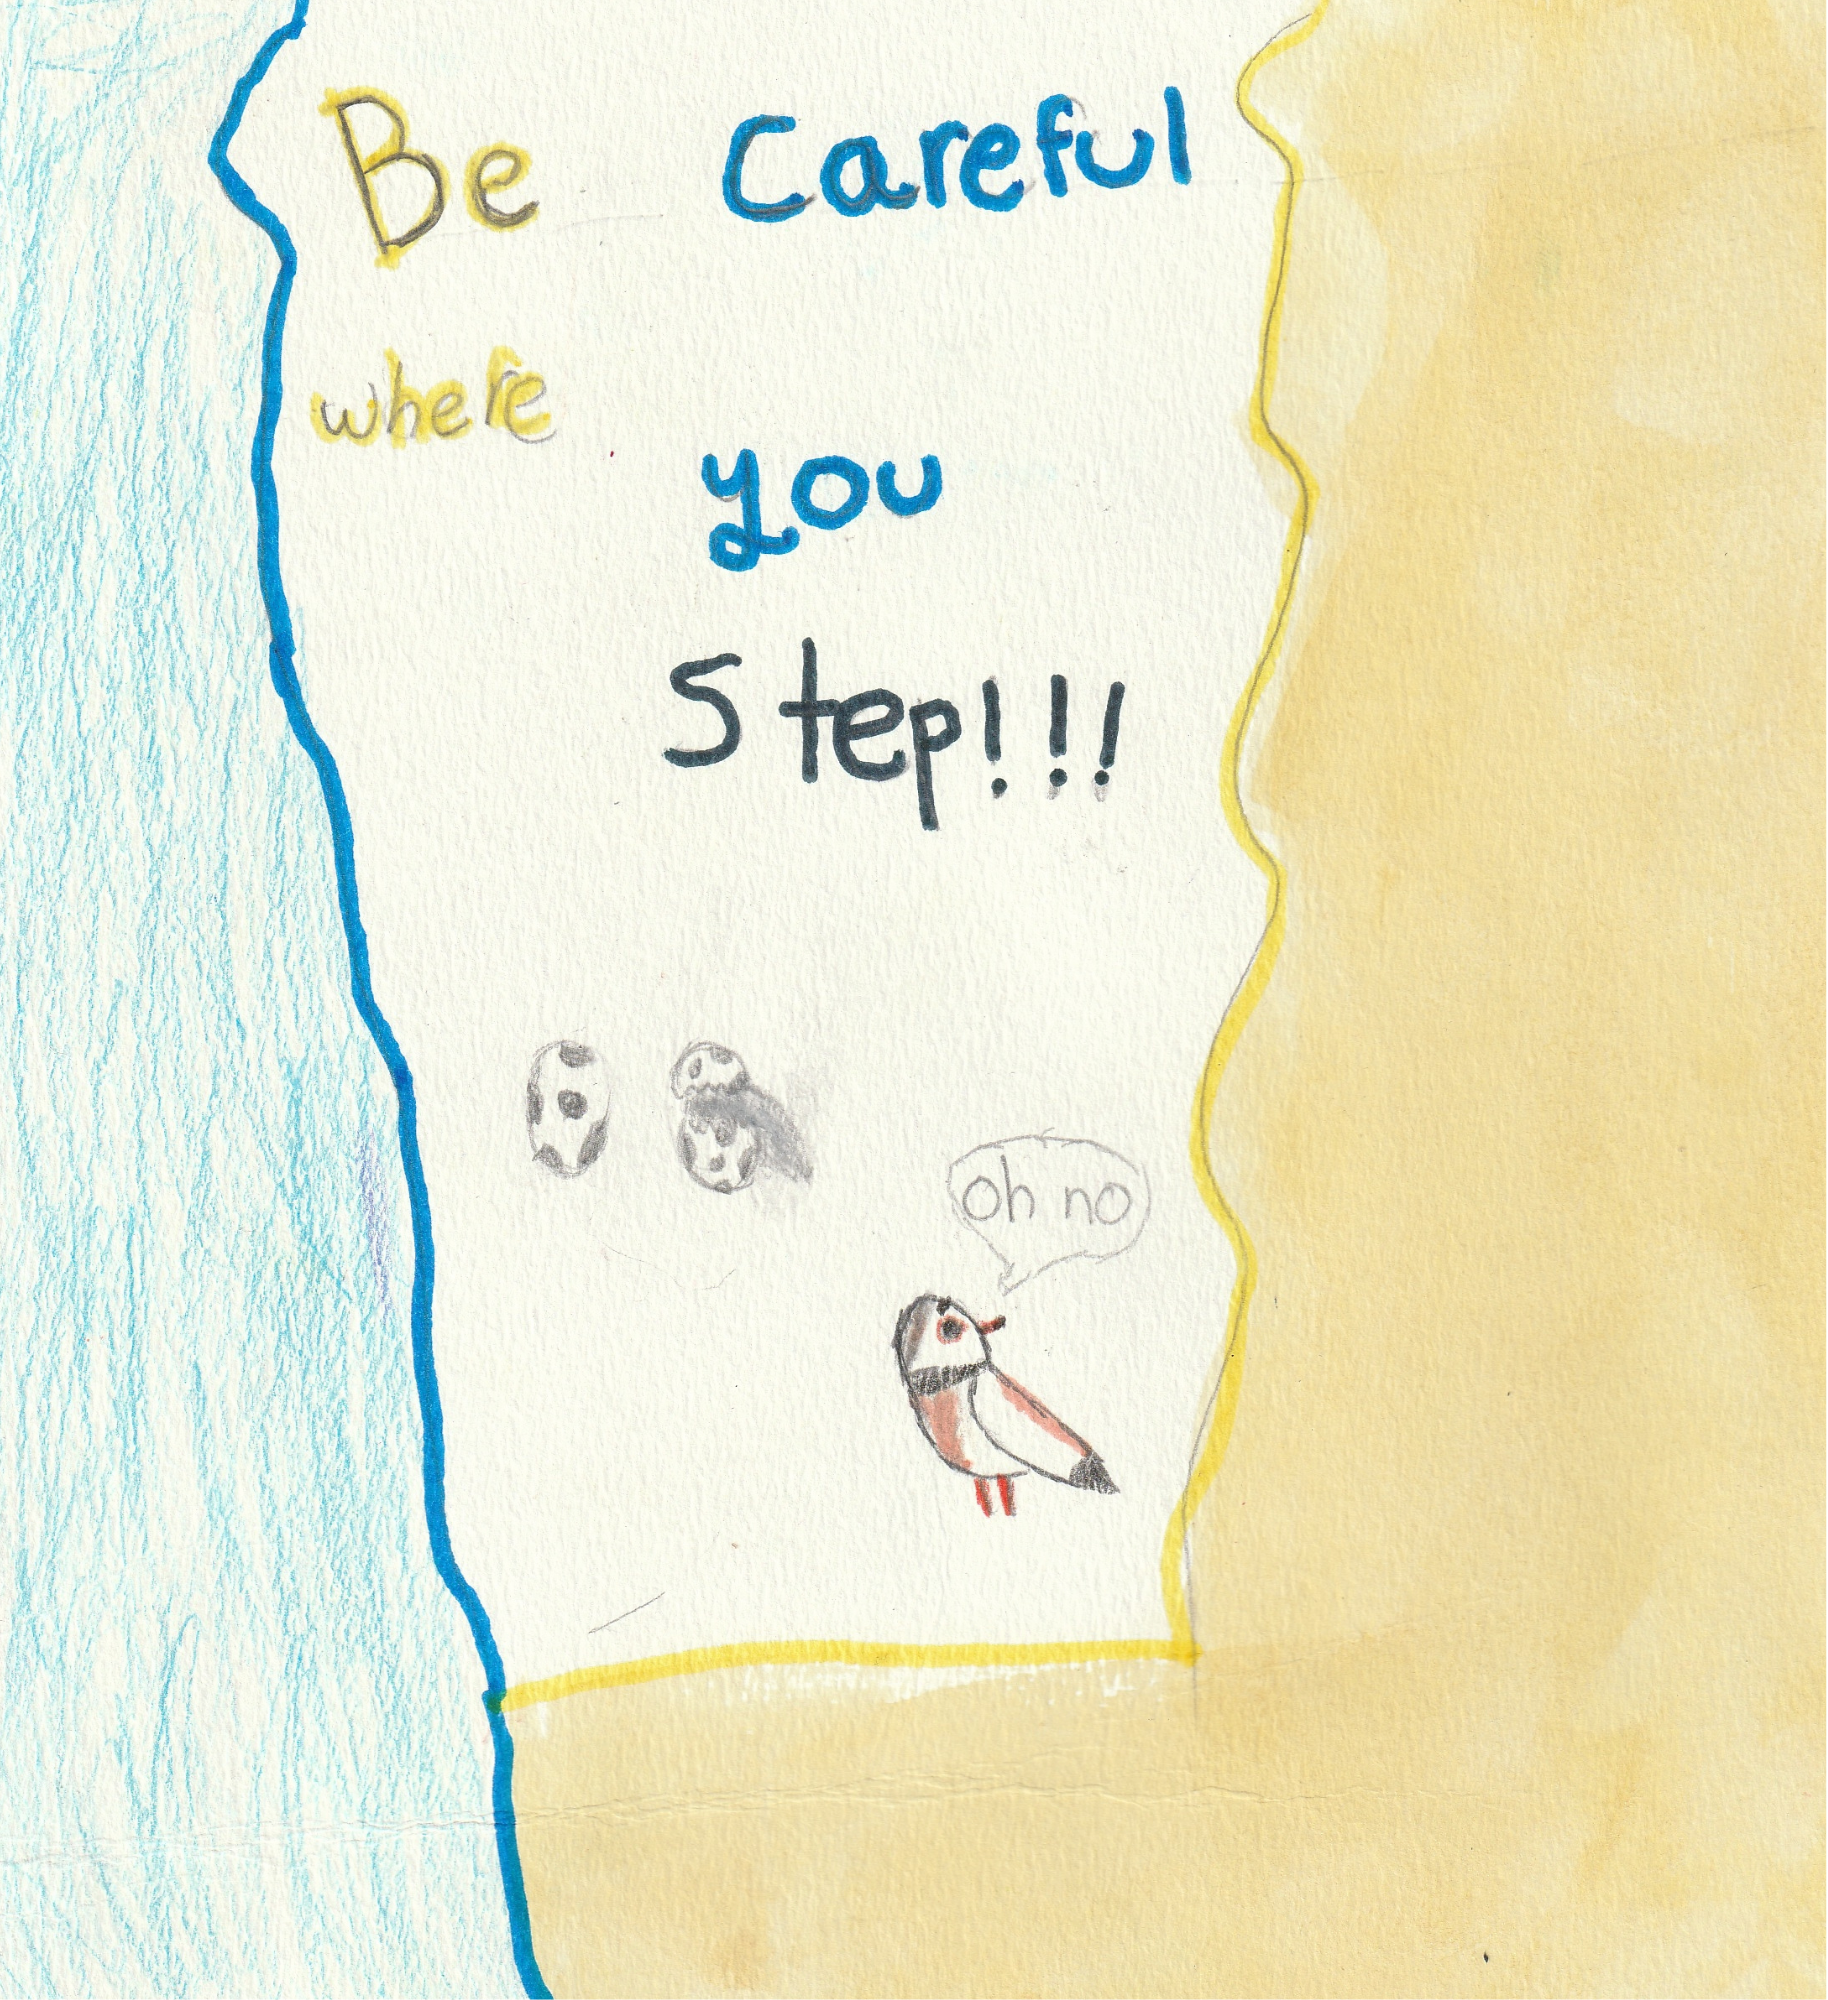 Be careful
where
you
Step!!!
oh no